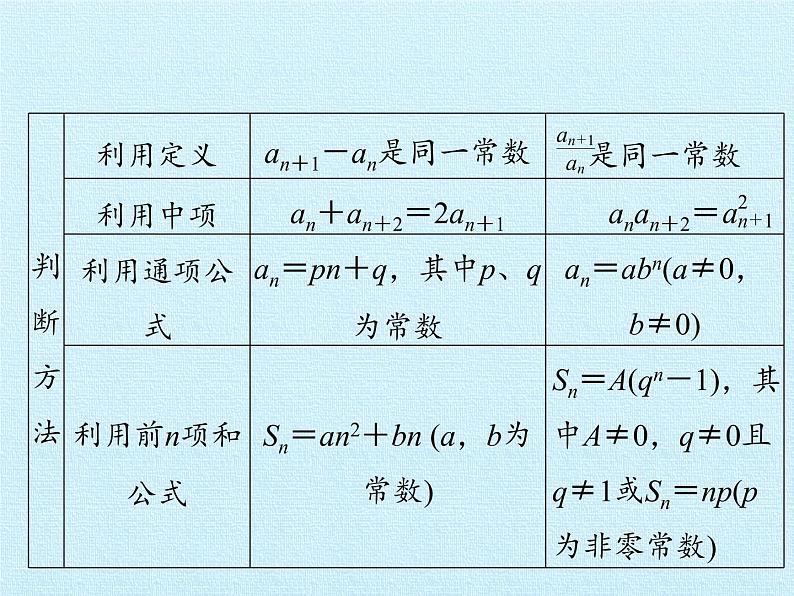 判断方法
利用定义 aₙ₊₁－aₙ是同一常数 aₙ₊₁/aₙ是同一常数
利用中项 aₙ＋aₙ₊₂＝2aₙ₊₁ aₙaₙ₊₂＝a²ₙ₊₁
利用通项公 aₙ＝pn＋q，其中p、q aₙ＝abⁿ(a≠0，
式 为常数 b≠0)
利用前n项和 Sₙ＝an²＋bn (a，b为 Sₙ＝A(qⁿ－1)，其
公式 常数) 中A≠0，q≠0且
q≠1或Sₙ＝np(p
为非零常数)